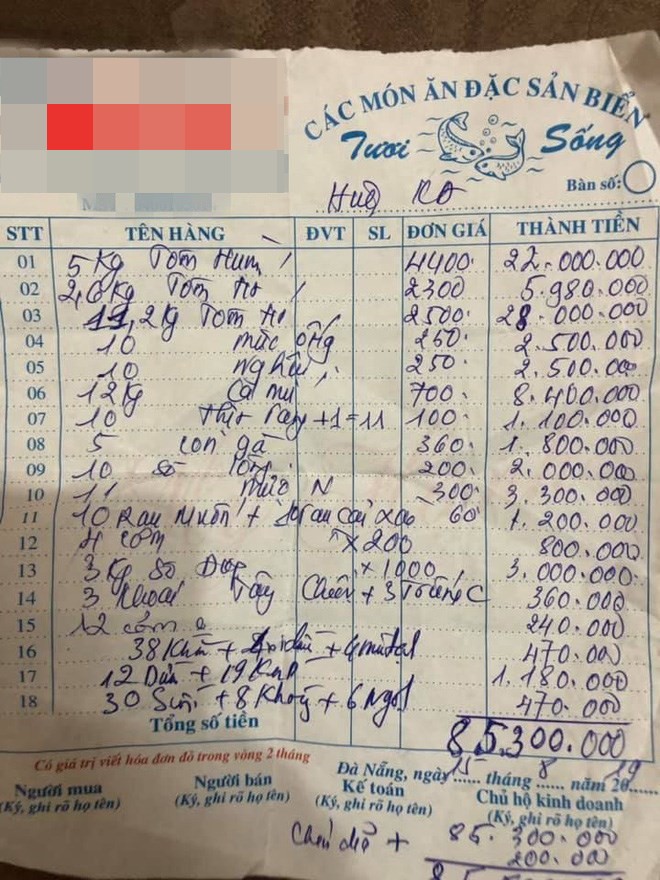 CÁC MÓN ĂN ĐẶC SẢN BIỂN
Tươi Sống
Bàn số:
STT TÊN HÀNG ĐVT SL ĐƠN GIÁ THÀNH TIỀN
01 5 Kg Tôm Hùm 4400 22.000.000
02 2,6 Kg Tôm 2300 5.980.000
03 11,2 Kg Tôm 2500 28.000.000
04 10 mực ống 250 2.500.000
05 10 nghêu 250 2.500.000
06 12 Kg Cá mú 700 8.400.000
07 10 +1=11 100 1.100.000
08 5 con gà 360 1.800.000
09 10 200 2.000.000
10 11 mực N 300 3.300.000
11 10 Rau Muốn + 10 rau cải xào 60 1.200.000
12 4 cơm x 200 800.000
13 3 Kg x 1000 3.000.000
14 3 Khoai Tây Chiên + 3 Trứng C 360.000
15 12 240.000
16 38 Khăn + + 470.000
17 12 Dừa + 19 1.180.000
18 30 + 8 + 6 Ngọt 470.000
Tổng số tiền 85.300.000
Có giá trị viết hóa đơn đỏ trong vòng 2 tháng
Đà Nẵng, ngày 15 tháng 8 năm 2019
Người mua Người bán Kế toán Chủ hộ kinh doanh
(Ký, ghi rõ họ tên) (Ký, ghi rõ họ tên) (Ký, ghi rõ họ tên) (Ký, ghi rõ họ tên)
+ 85.300.000
200.000